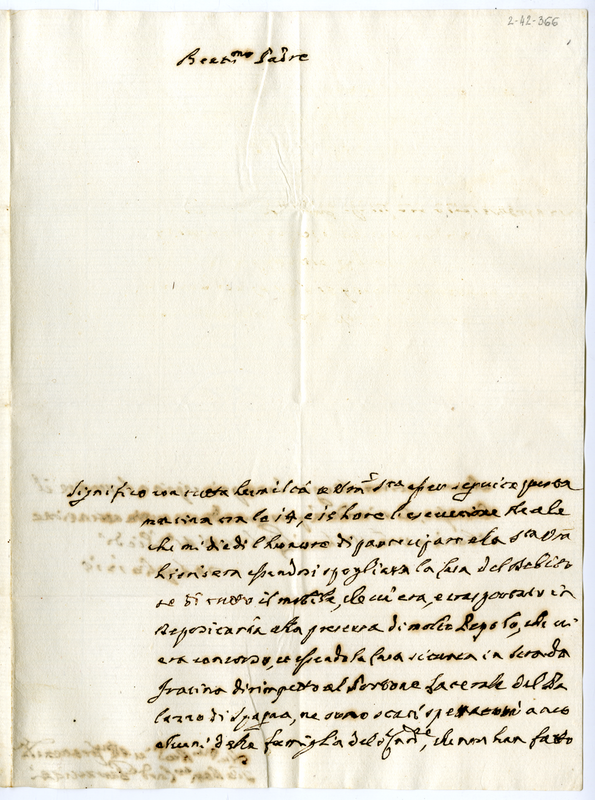 2-42-366
Beat.mo Padre
Significo con tutta humiltà a V.ra S.tà esser seguita questa
matina tra le 14, e 15 hore l'esecutione Reale
che mi diedi l'honore di participare alla S.tà V.ra
hiersera essendosi spogliata la Casa del Debito
re di tutto il mobile, che vi era, e trasportato in
Depositaria alla presenza di molto Popolo, che vi
era concorso, et essendo la Casa situata in strada
Fratina dirimpetto al Portone Laterale del Pa
lazzo di Spagna, ne sono stati spettatori anco
alcuni della famiglia del S.r, che non han fatto